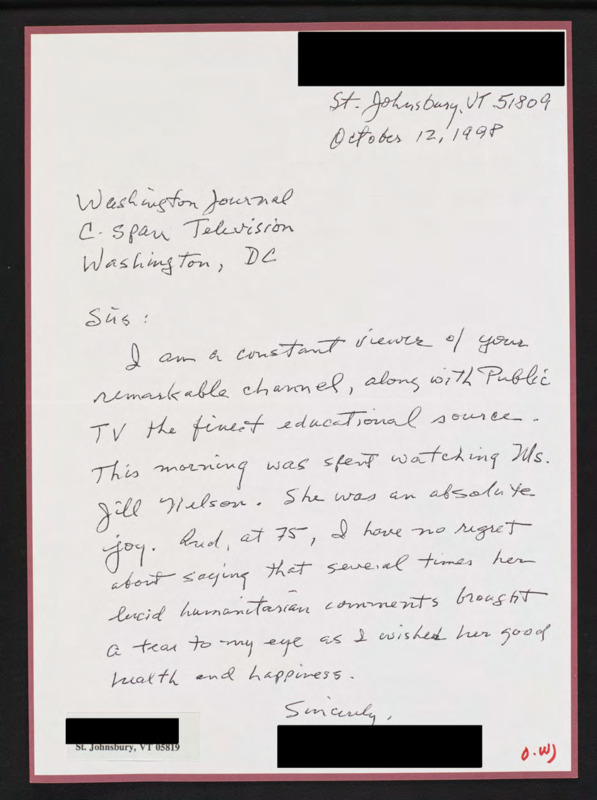 St. Johnsbury, VT 51809
October 12, 1998
Washington Journal
C. Span Television
Washington, DC
Sirs:
I am a constant viewer of your
remarkable channel, along with Public
TV the finest educational source.
This morning was spent watching Ms.
Jill Nelson. She was an absolute
joy. And, at 75, I have no regret
about saying that several times her
lucid humanitarian comments brought
a tear to my eye as I wished her good
health and happiness.
Sincerely,
St. Johnsbury, VT 05819
O.W)